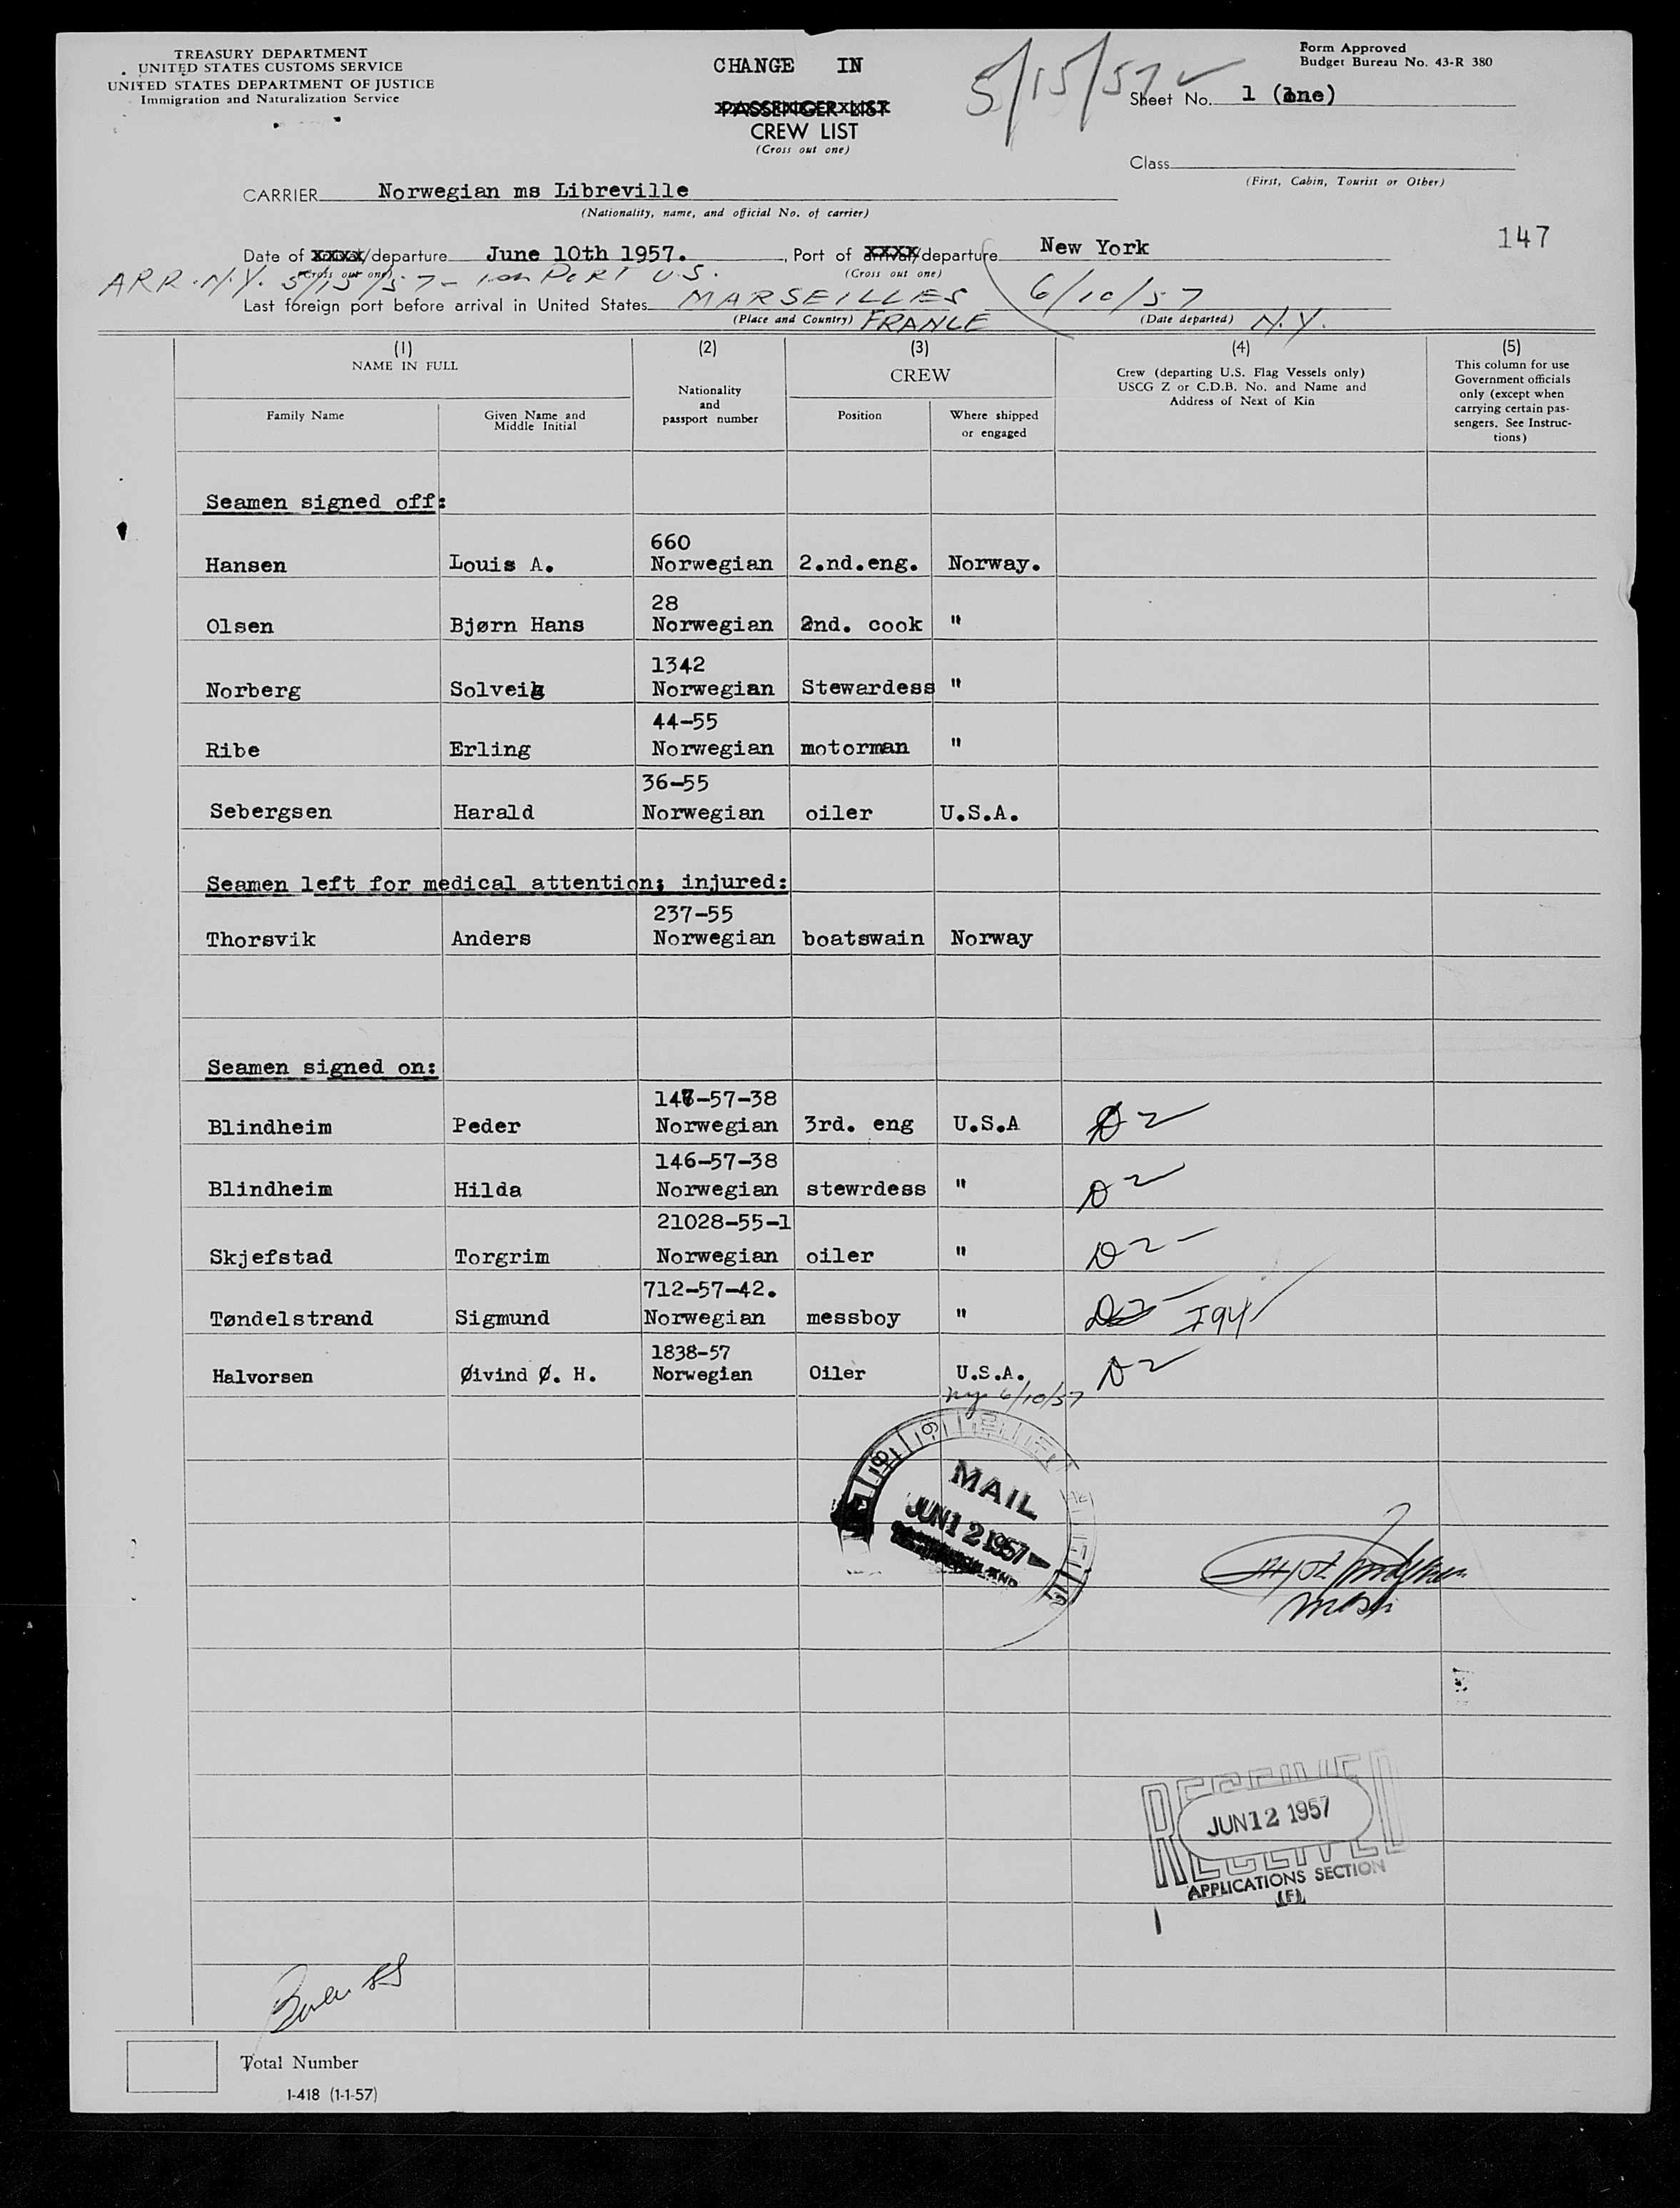 TREASURY DEPARTMENT
UNITED STATES CUSTOMS SERVICE
UNITED STATES DEPARTMENT OF JUSTICE
Immigration and Naturalization Service
CHANGE IN
PASSENGER LIST
CREW LIST
(Cross out one)
5/15/57
Form Approved
Budget Bureau No. 43-R 380
Sheet No. 1 (one)
Class
(First, Cabin, Tourist or Other)
CARRIER Norwegian ms Libreville
(Nationality, name, and official No. of carrier)
147
Date of arrival/departure June 10th 1957. , Port of arrival/departure New York
(Cross out one) (Cross out one)
ARR. N.Y. 5/15/57 - PORT U.S.
Last foreign port before arrival in United States MARSEILLES 6/10/57
(Place and Country) FRANCE (Date departed) N.Y.
(1) (2) (3) (4) (5)
NAME IN FULL
Nationality and passport number
CREW
Crew (departing U.S. Flag Vessels only)
USCG Z or C.D.B. No. and Name and
Address of Next of Kin
This column for use
Government officials
only (except when
carrying certain pas-
sengers. See Instruc-
tions)
Family Name Given Name and Middle Initial Position Where shipped or engaged
Seamen signed off:
660
Hansen Louis A. Norwegian 2.nd.eng. Norway.
28
Olsen Bjørn Hans Norwegian 2nd. cook "
1342
Norberg Solveig Norwegian Stewardess "
44-55
Ribe Erling Norwegian motorman "
36-55
Sebergsen Harald Norwegian oiler U.S.A.
Seamen left for medical attention; injured:
237-55
Thorsvik Anders Norwegian boatswain Norway
Seamen signed on:
147-57-38
Blindheim Peder Norwegian 3rd. eng U.S.A D2
146-57-38
Blindheim Hilda Norwegian stewrdess " D2
21028-55-1
Skjefstad Torgrim Norwegian oiler " D2
712-57-42.
Tøndelstrand Sigmund Norwegian messboy " D2 I94
1838-57
Halvorsen Øivind Ø. H. Norwegian Oiler U.S.A. D2
ny 6/10/57
MAIL
JUN 12 1957
RECEIVED
JUN 12 1957
APPLICATIONS SECTION
(F)
Total Number
I-418 (1-1-57)